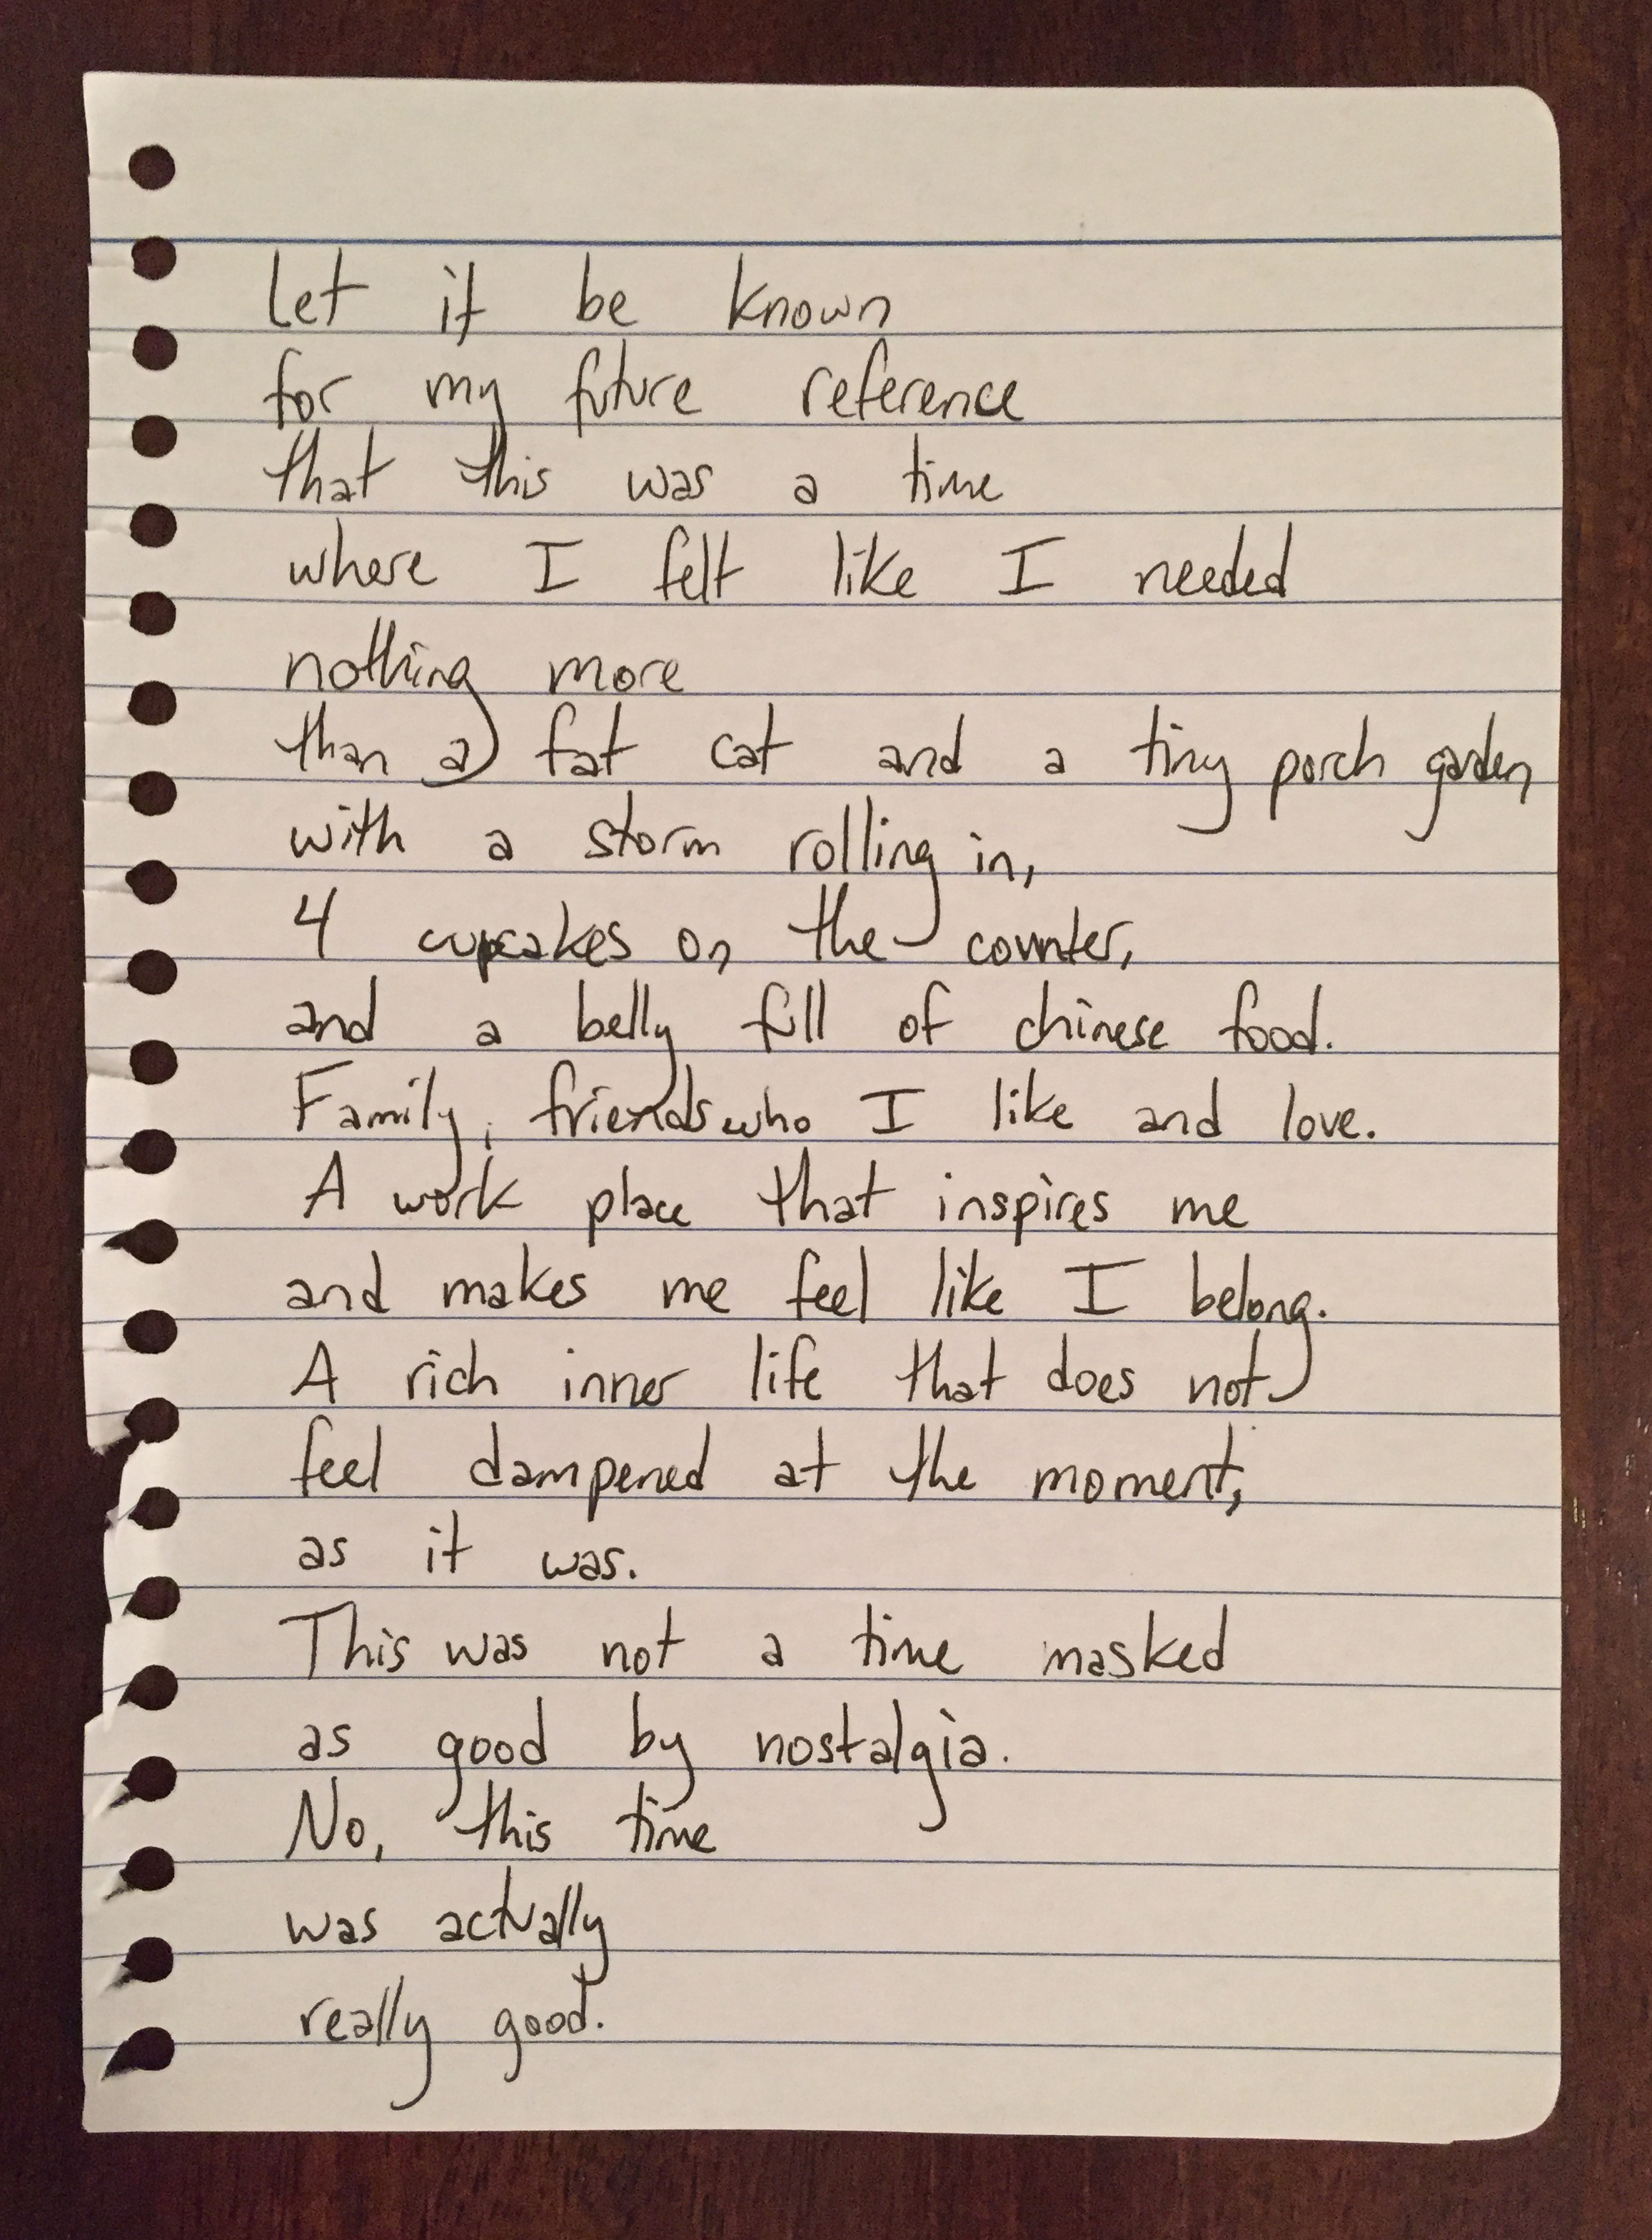 Let it be known
for my future reference
that this was a time
where I felt like I needed
nothing more
than a fat cat and a tiny porch garden
with a storm rolling in,
4 cupcakes on the counter,
and a belly full of chinese food.
Family, friends who I like and love.
A work place that inspires me
and makes me feel like I belong.
A rich inner life that does not
feel dampened at the moment,
as it was.
This was not a time masked
as good by nostalgia.
No, this time
was actually
really good.